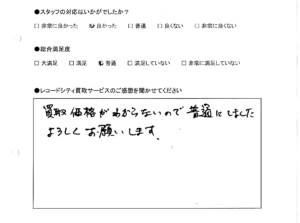 ●スタッフの対応はいかがでしたか？
□ 非常に良かった　☑ 良かった　□ 普通　□ 良くない　□ 非常に良くない
●総合満足度
□ 大満足　□ 満足　☑ 普通　□ 満足していない　□ 非常に満足していない
●レコードシティ買取サービスのご感想を聞かせてください
買取価格がわからないので普通にしました
よろしくお願いします。